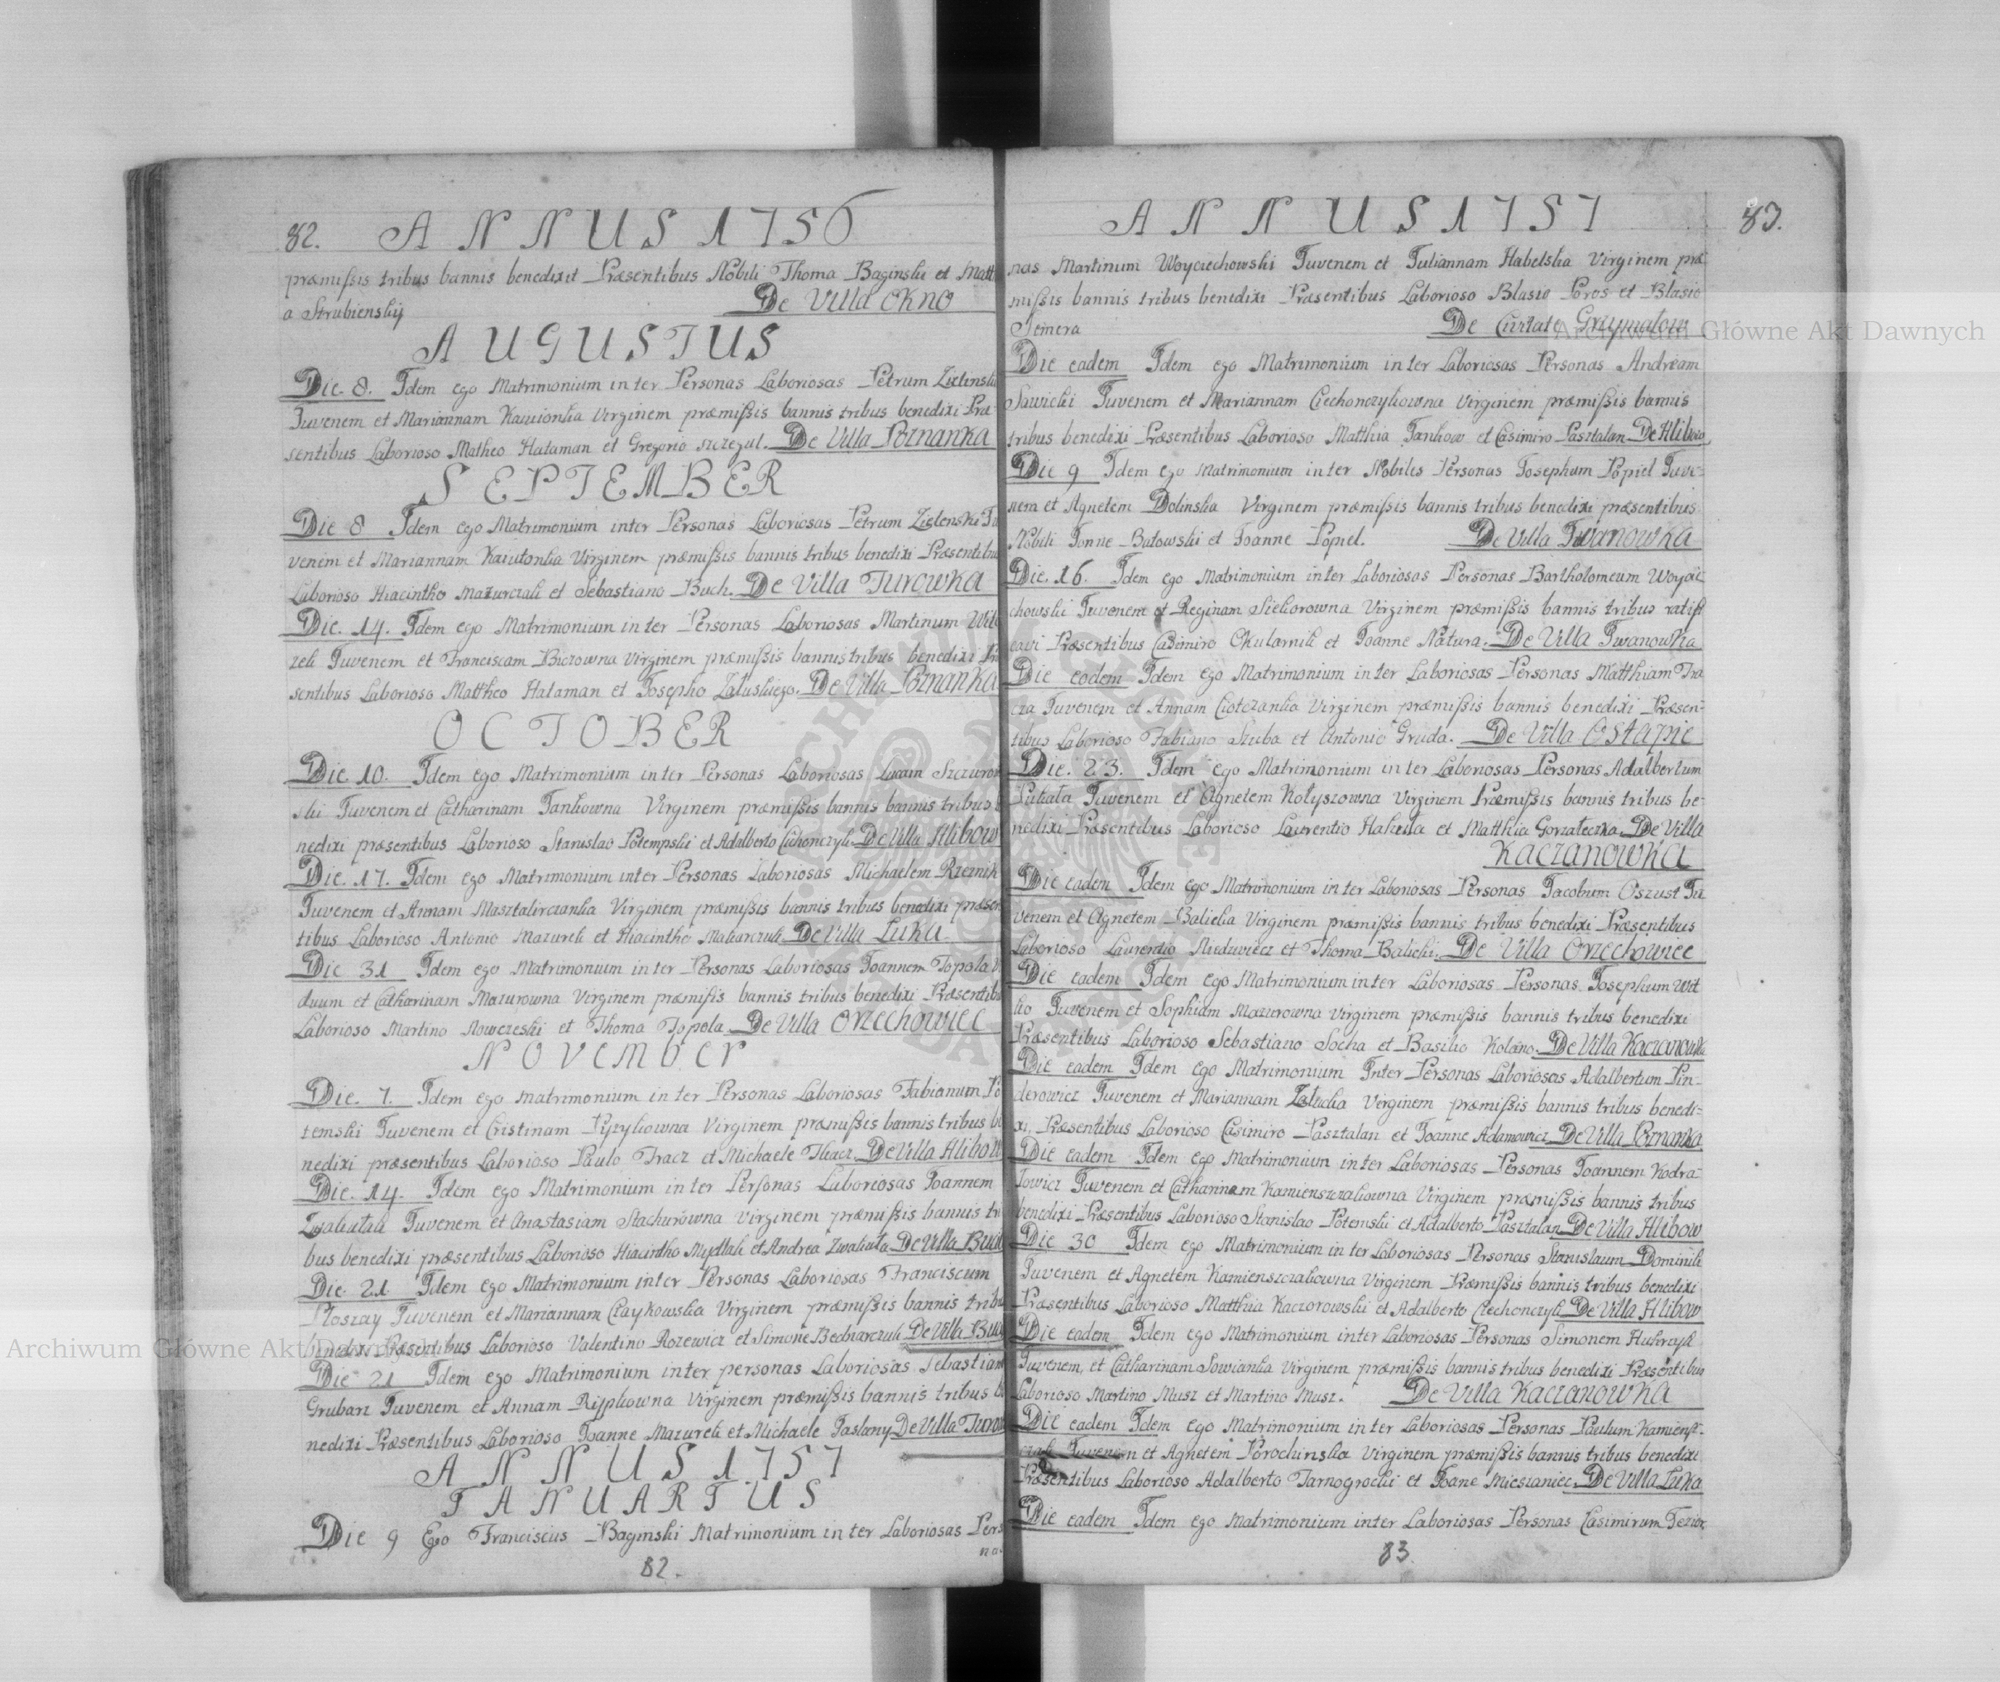 82. ANNUS 1756
præmissis tribus bannis benedixit Præsentibus Nobili Thoma Baginski et Matt
a Strubienskij De Villa OKNO
AUGUSTUS
Die. 8. Idem ego Matrimonium inter Personas Laboriosas Petrum Zielenski
Juvenem et Mariannam Virginem præmissis bannis tribus benedixi Præ
sentibus Laborioso Matheo Hataman et Gregorio De Villa Poznanka
SEPTEMBER
Die 8 Idem ego Matrimonium inter Personas Laboriosas Petrum Zielenski Ju
venem et Mariannam Virginem præmissis bannis tribus benedixi Præsentibus
Laborioso Hiacintho Mazurczak et Sebastiano Buch. De Villa Turowka
Die. 14. Idem ego Matrimonium inter Personas Laboriosas Martinum Wil
czek Juvenem et Franciscam Virginem præmissis bannis tribus benedixi Præ
sentibus Laborioso Mattheo Hataman et Josepho De Villa Poznanka
OCTOBER
Die 10. Idem ego Matrimonium inter Personas Laboriosas Lucam Szczurow
ski Juvenem et Catharinam Jankowna Virginem præmissis bannis bannis tribus be
nedixi præsentibus Laborioso Stanislao Potempski et Adalberto De Villa Hlibow
Die. 17. Idem ego Matrimonium inter Personas Laboriosas Michaelem Rzeznik
Juvenem et Annam Masztalirczanka Virginem præmissis bannis tribus benedixi præsen
tibus Laborioso Antonio Mazurek et Hiacintho De Villa Luka
Die 31 Idem ego Matrimonium inter Personas Laboriosas Joannem Topola Vi
duum et Catharinam Mazurowna Virginem præmissis bannis tribus benedixi Præsentibus
Laborioso Martino et Thoma Topola. De Villa Orzechowiec
NOVEMBER
Die. 7. Idem ego Matrimonium inter Personas Laboriosas Fabianum Po
temski Juvenem et Cristinam Virginem præmissis bannis tribus be
nedixi præsentibus Laborioso Paulo Tracz et Michaele Tkacz. De Villa Hlibow
Die. 14. Idem ego Matrimonium inter Personas Laboriosas Joannem
Juvenem et Anastasiam Stachurowna Virginem præmissis bannis tri
bus benedixi præsentibus Laborioso Hiacintho Mydlak et Andrea De Villa
Die. 21 Idem ego Matrimonium inter Personas Laboriosas Franciscum
Ploszay Juvenem et Mariannam Czaykowska Virginem præmissis bannis tribus
benedixi Præsentibus Laborioso Valentino Rozewicz et Simone Bednarczuk De Villa
Die 21 Idem ego Matrimonium inter personas Laboriosas Sebastianum
Grubarz Juvenem et Annam Virginem præmissis bannis tribus be
nedixi Præsentibus Laborioso Joanne Mazurek et Michaele De Villa
ANNUS 1757
JANUARIUS
Die 9 Ego Franciscus Baginski Matrimonium inter Laboriosas Perso
nas
82.
ANNUS 1757 83.
nas Martinum Woyciechowski Juvenem et Juliannam Habelska Virginem præ
missis bannis tribus benedixi Præsentibus Laborioso Blasio Poros et Blasio
Semera De Civitate Grzymalow
Die eadem Idem ego Matrimonium inter Laboriosas Personas Andream
Sawicki Juvenem et Mariannam Ciechonczykowna Virginem præmissis bannis
tribus benedixi Præsentibus Laborioso Matthia Jankow et Casimiro Pasztalan De Hlibow
Die 9 Idem ego Matrimonium inter Nobiles Personas Josephum Popiel Juve-
nem et Agnetem Dolinska Virginem præmissis bannis tribus benedixi præsentibus
Nobili Jonne Butowski et Joanne Popiel. De Villa Iwanowka
Die. 16. Idem ego Matrimonium inter Laboriosas Personas Bartholomeum Woycie
chowski Juvenem et Reginam Siekorowna Virginem præmissis bannis tribus ratifi
cavi Præsentibus Casimiro Okularnik et Joanne Natura. De Villa Iwanowka
Die eodem Idem ego Matrimonium inter Laboriosas Personas Matthiam Tra
cza Juvenem et Annam Virginem præmissis bannis benedixi Præsen-
tibus Laborioso Fabiano Szuba et Antonio Gruda. De Villa Ostapie
Die. 23. Idem ego Matrimonium inter Laboriosas Personas Adalbertum
Juvenem et Agnetem Kolyszowna Virginem Præmissis bannis tribus be-
nedixi Præsentibus Laborioso Laurentio et Matthia Gorzaleczka. De Villa
Kaczanowka
Die eadem Idem ego Matrimonium inter Laboriosas Personas Jacobum Oszust Ju
venem et Agnetem Balicka Virginem præmissis bannis tribus benedixi Præsentibus
Laborioso Laurentio et Thoma Balicki. De Villa Orzechowiec
Die eadem Idem ego Matrimonium inter Laboriosas Personas Josephum Wit
ko Juvenem et Sophiam Mazurowna Virginem præmissis bannis tribus benedixi
Præsentibus Laborioso Sebastiano Socha et Basilio Kolano. De Villa Kaczanowka
Die eadem Idem ego Matrimonium Inter Personas Laboriosas Adalbertum Pin-
derowicz Juvenem et Mariannam Virginem præmissis bannis tribus benedi-
xi, Præsentibus Laborioso Casimiro Pasztalan et Joanne Adamowicz De Villa Poznanka
Die eadem Idem ego Matrimonium inter Laboriosas Personas Joannem Kodra-
towicz Juvenem et Catharinam Kamienszczakowna Virginem præmissis bannis tribus
benedixi Præsentibus Laborioso Stanislao Potemski et Adalberto Pasztalan De Villa Hlibow
Die 30 Idem ego Matrimonium inter Laboriosas Personas Stanislaum Dominik
Juvenem et Agnetem Kamienszczakowna Virginem Præmissis bannis tribus benedixi
Præsentibus Laborioso Matthia Kaczorowski et Adalberto Ciechonczyk De Villa Hlibow
Die eadem Idem ego Matrimonium inter Laboriosas Personas Simonem
Juvenem, et Catharinam Sowianka Virginem præmissis bannis tribus benedixi Præsentibus
Laborioso Martino Musz et Martino Musz. De Villa Kaczanowka
Die eadem Idem ego Matrimonium inter Laboriosas Personas Paulum Kamiensz-
czak Juvenem et Agnetem Porochinska Virginem præmissis bannis tribus benedixi
Præsentibus Laborioso Adalberto Tarnogrocki et Joane Miesianiec. De Villa Luka
Die eadem Idem ego Matrimonium inter Laboriosas Personas Casimirum
83
Archiwum Główne Akt Dawnych
Archiwum Główne Akt Dawnych